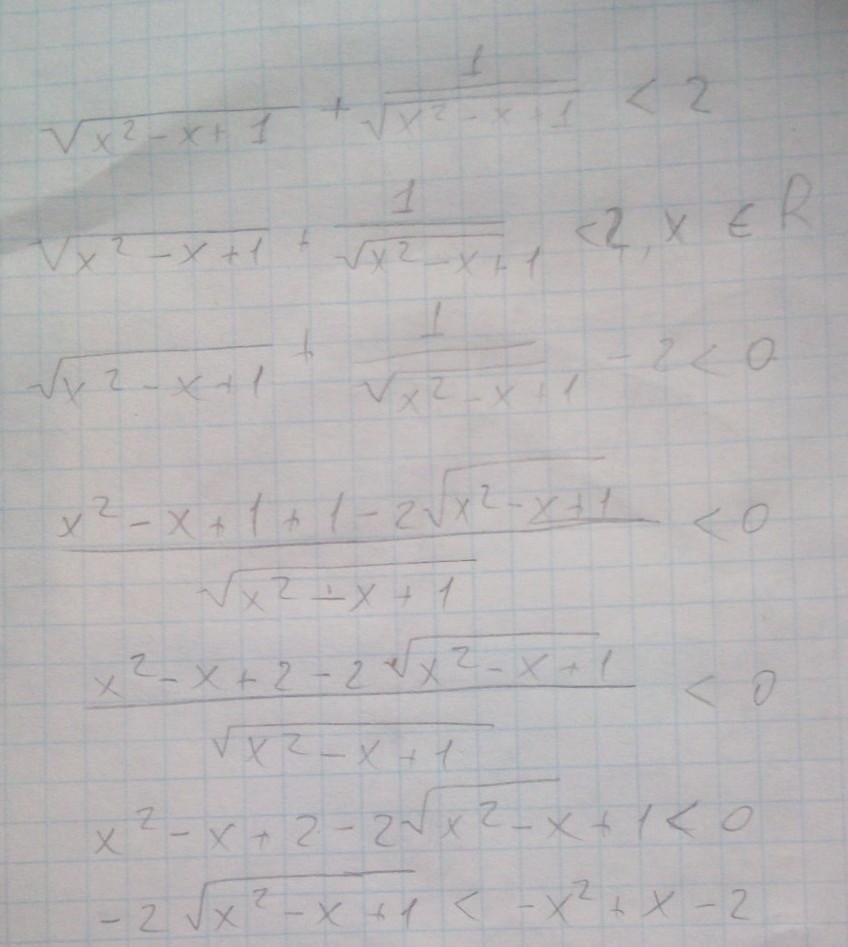 √(x² - x + 1) + 1/√(x² - x + 1) < 2
√(x² - x + 1) + 1/√(x² - x + 1) < 2, x ∈ R
√(x² - x + 1) + 1/√(x² - x + 1) - 2 < 0
(x² - x + 1 + 1 - 2√(x² - x + 1))/√(x² - x + 1) < 0
(x² - x + 2 - 2√(x² - x + 1))/√(x² - x + 1) < 0
x² - x + 2 - 2√(x² - x + 1) < 0
-2√(x² - x + 1) < -x² + x - 2